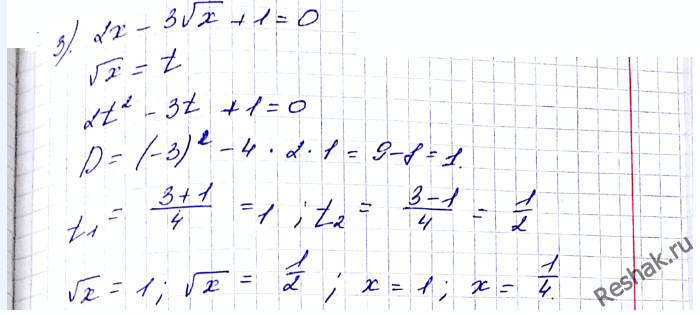 3). 2x - 3√x + 1 = 0
√x = t
2t² - 3t + 1 = 0
D = (-3)² - 4 · 2 · 1 = 9 - 8 = 1.
t₁ = (3+1)/4 = 1 ; t₂ = (3-1)/4 = 1/2
√x = 1 ; √x = 1/2 ; x = 1 ; x = 1/4.
Reshak.ru